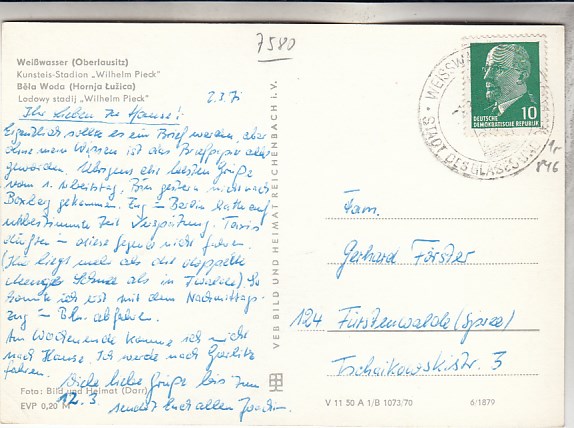 7580
Weißwasser (Oberlausitz)
Kunsteis-Stadion „Wilhelm Pieck"
Běła Woda (Hornja Łužica)
Lodowy stadij „Wilhelm Pieck"
2.3.71
Ihr Lieben zu Hause!
Eigentlich sollte es ein Brief werden, aber
ohne mein Wissen ist das Briefpapier alle
geworden. Übrigens die besten Grüße
vom 1. Arbeitstag. Bin gestern nicht nach
Boxberg gekommen. Zug – Berlin hatte auf
unbestimmte Zeit Verspätung. Taxis
dürfen – diese Gegend nicht fahren.
(Hier liegt mehr als die doppelte
Menge Schnee als in ) So
konnte ich erst mit dem Nachmittags-
zug – Bln. abfahren.
Am Wochenende komme ich nicht
nach Hause. Ich werde nach Görlitz
fahren.
Viele liebe Grüße bis zum
12.3. sendet Euch allen Joachim.
Foto: Bild und Heimat (Darr)
EVP 0,20 M
VEB BILD UND HEIMAT REICHENBACH i. V.
WEISSWA
STADT DES GLASES
10
DEUTSCHE
DEMOKRATISCHE REPUBLIK
846
Fam.
Gerhard Förster
124 Fürstenwalde (Spree)
Tschaikowskistr. 3
V 11 50 A 1/B 1073/70 6/1879